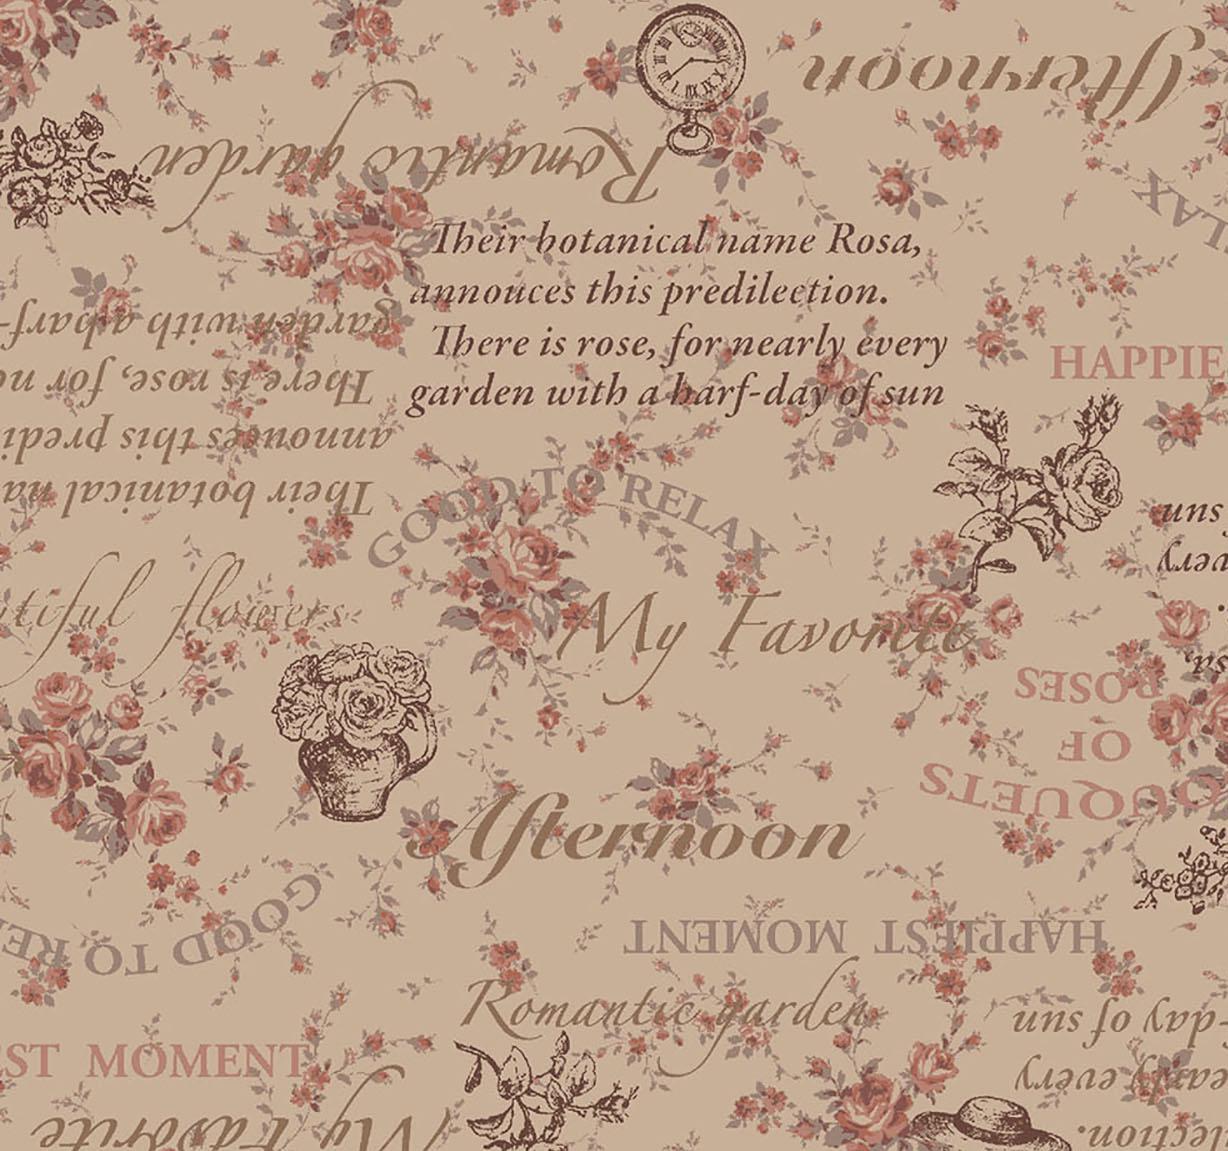 Afternoon
Romantic garden
LAX
Their botanical name Rosa,
annouces this predilection.
There is rose, for nearly every
garden with a harf-day of sun
garden with a harf-
There is rose, for ne
annouces this predi
Their botanical na
HAPPIE
GOOD TO RELAX
sun
very
tiful flowers
My Favorite
sa,
BOUQUETS
OF
ROSES
Afternoon
GOOD TO RE
HAPPIEST MOMENT
Romantic garden
-day of sun
early every
lection.
EST MOMENT
My Favorite